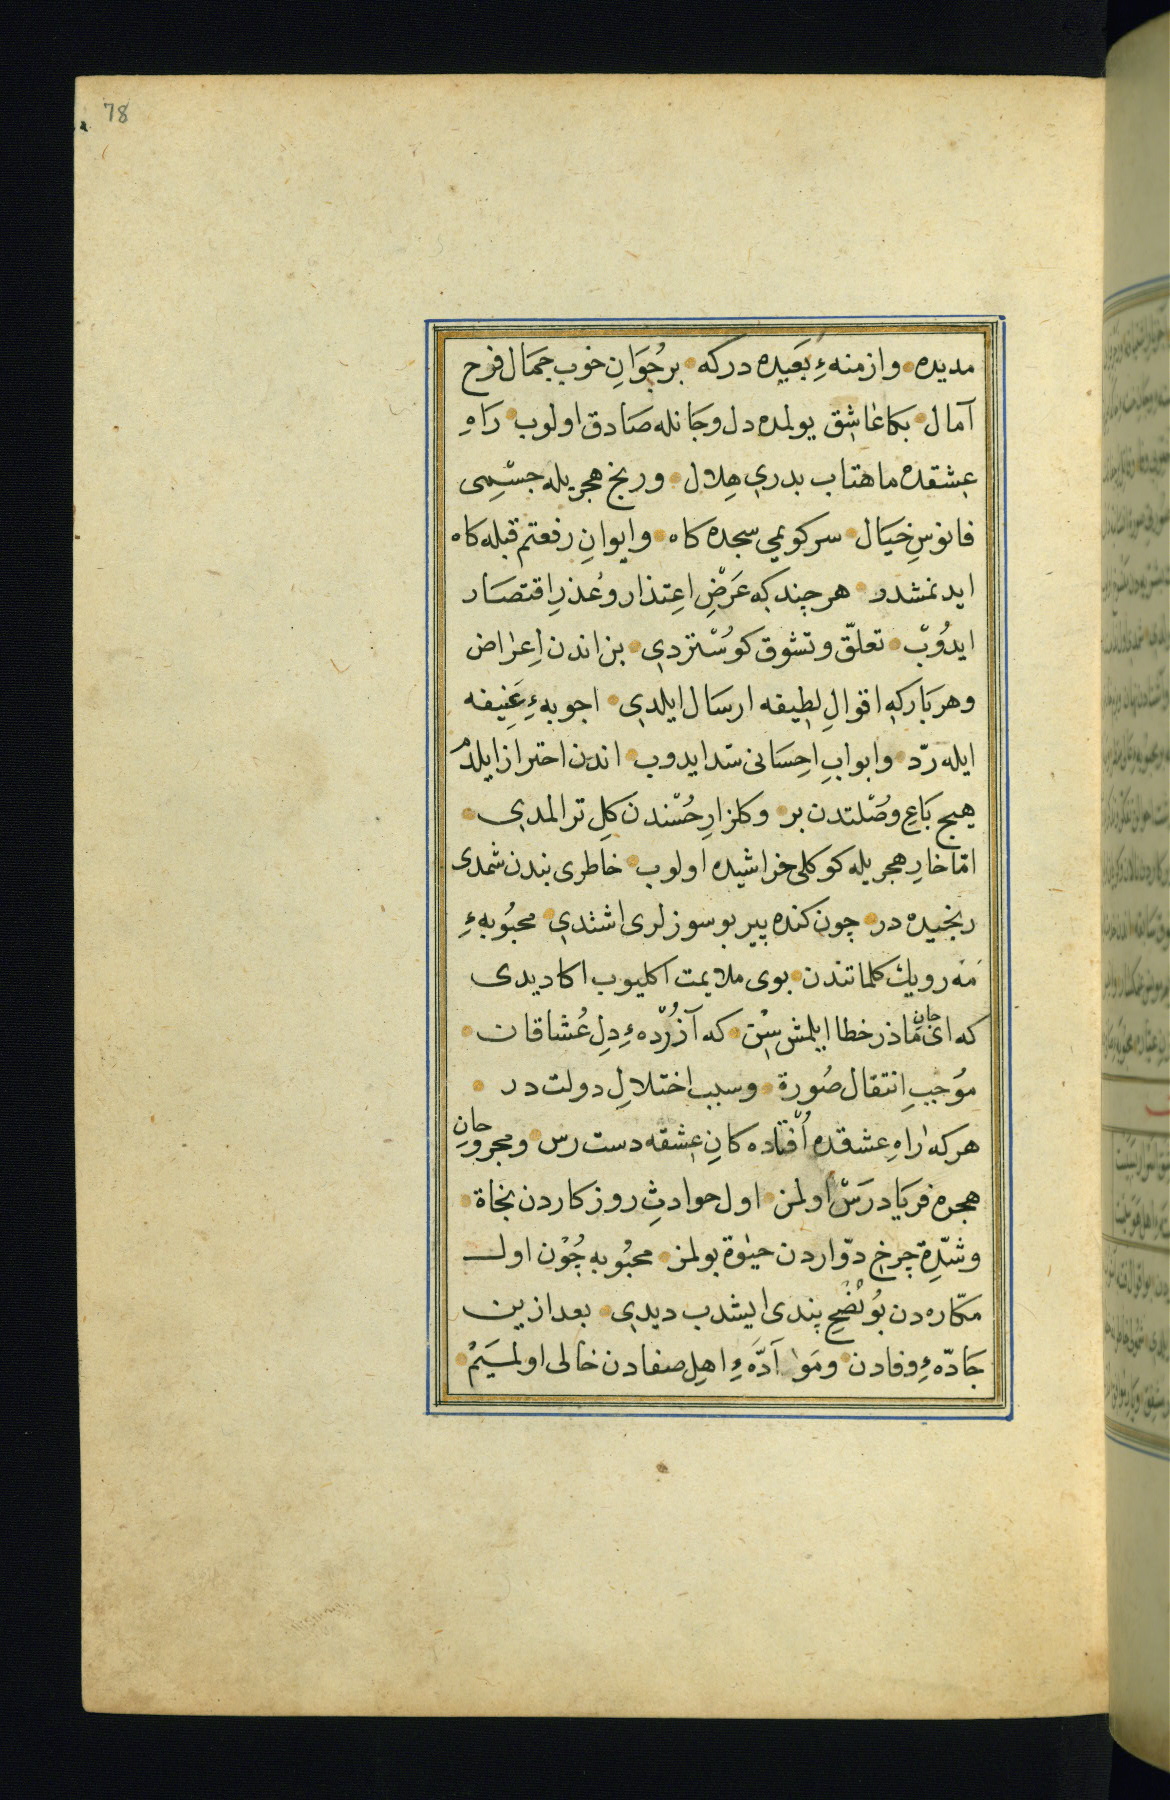 78
مديده وازمنهٔ بَعَيده دركه برجُوَانِ خوب جمَال فرح
آمال بكاعَاشِق يولمده دل وجَانله صَادق اولوب رَاهِ
عِشقده ماهتاب بدرى هِلال ورنج هجريله جسْمِى
فانوسِ خيَال سركويمى سجده كاه وايوانِ رفعتم قبله كاه
ايدنمشدر هرچند كه عَرْضِ اعِتذار وعُذرِ اقتصَار
ايدُوبْ تعلّق وتشوق كوسْتردى بن اندن اِعرٰاض
وهر بَاركه اقوالِ لطِيفه ارسَال ايلدى اجوبهٔ عَنِيفه
ايله ردّ وابوابِ احِسَانى سَد ايدوب اندن احتراز ايلدم
هيچ بَاغِ وصُلتدن بر وكلزارِ حُسْندن كلِ تر المدى
امّا خارِ هجريله كوكلى خراشيده اولوب خاطرى بندن شمدى
رنجيده در چون كنده پير بو سوزلرى اشتدى محبُوبهٔ
مَه رويك كلماتندن بوى ملايمت اكليوب اكا ديدى
كه اى جانِ مَاذر خطا ايلمش سِن كه آزُرّدهٔ دِلِ عُشاقان
مُوَجبِ انتقال صُورة وسبب اختلالِ دولت در
هركه رٰاهِ عشقده اُفْتَاده كانِ عِشقه دست رس ومجروحانِ
هجره فريَادرَسْ اولمز اول حوادثِ روزكاردن نجاة
وشدّة چرخ دوّاردن حيٰوة بولمز محبُوبه چُون اول
مكّاره دن بُو نُصْحِ پندى ايشدب ديدى بعد ازين
جَادّهٔ وفادن ومَوٰآدَّهٔ اهلِ صفادن خالى اولميَمْ